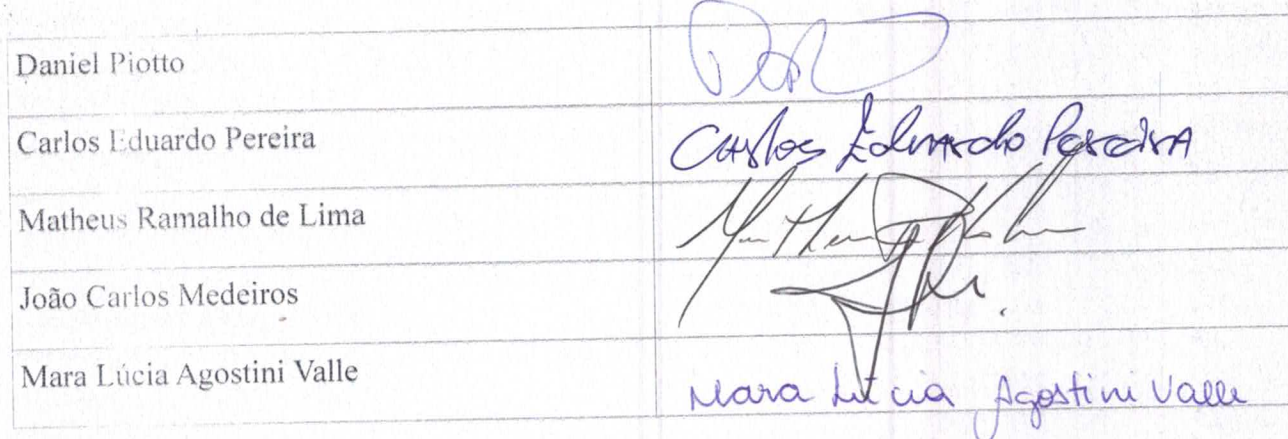 Daniel Piotto
Carlos Eduardo Pereira Carlos Eduardo Pereira
Matheus Ramalho de Lima
João Carlos Medeiros
Mara Lúcia Agostini Valle Mara Lúcia Agostini Valle